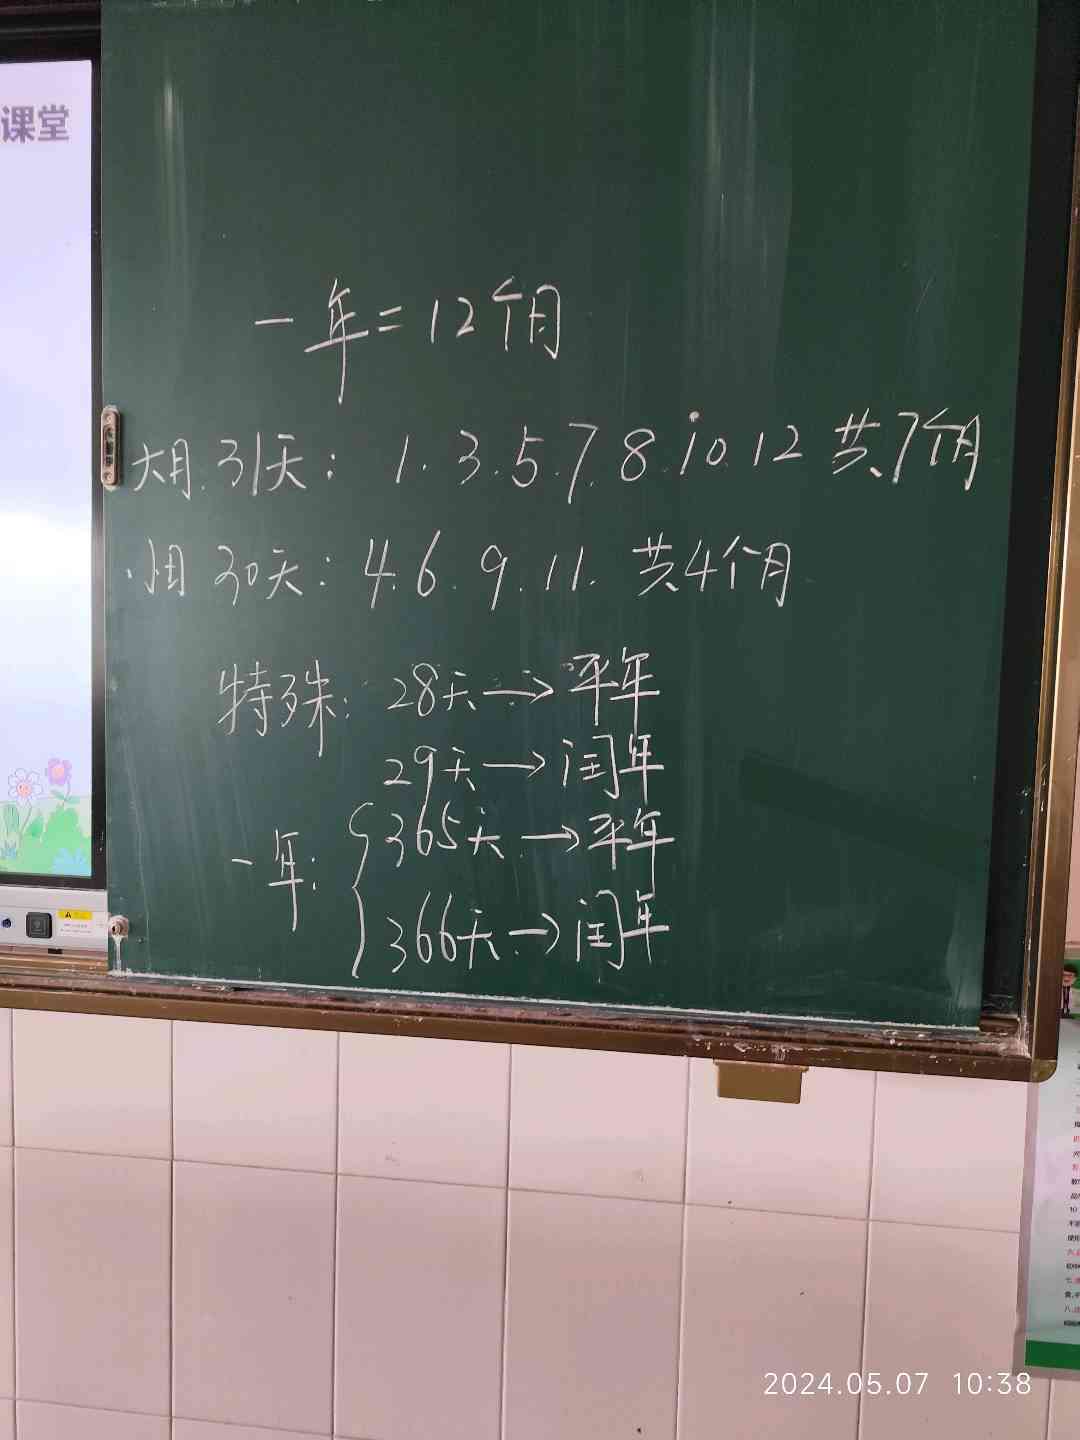 课堂
一年=12个月
大月.31天: 1.3.5.7.8.10.12 共7个月
小月 30天: 4.6.9.11. 共4个月
特殊: 28天→平年
29天→闰年
一年: 365天→平年
366天→闰年
2024.05.07 10:38